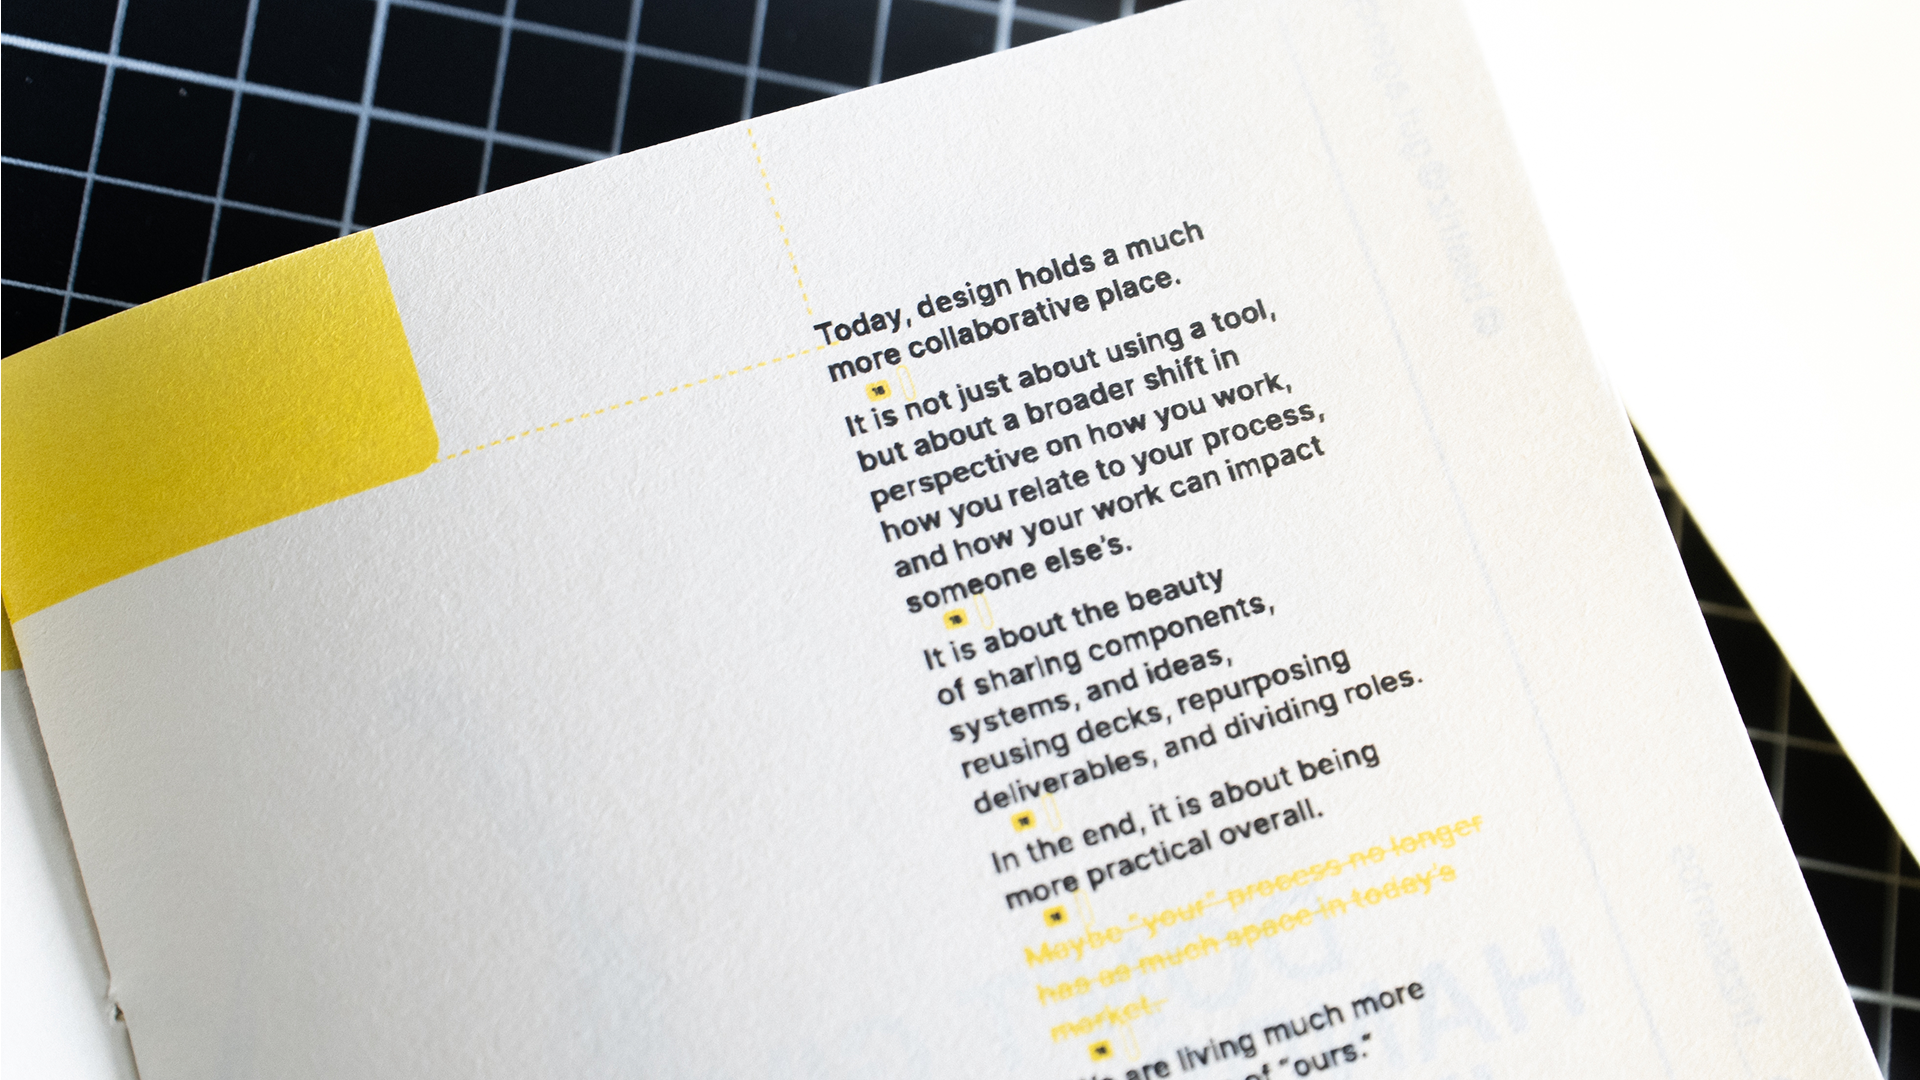 Today, design holds a much
more collaborative place.
It is not just about using a tool,
but about a broader shift in
perspective on how you work,
how you relate to your process,
and how your work can impact
someone else's.
It is about the beauty
of sharing components,
systems, and ideas,
reusing decks, repurposing
deliverables, and dividing roles.
In the end, it is about being
more practical overall.
Maybe "your" process no longer
has as much space in today's
market.
are living much more
of "ours."